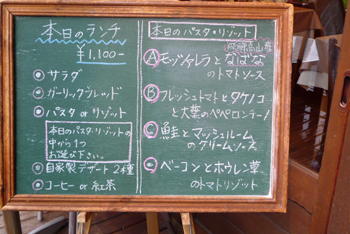 本日のランチ
¥1,100-
サラダ
ガーリックブレッド
パスタ or リゾット
本日のパスタ・リゾットの
中から1つ
お選び下さい。
自家製デザート2種
コーヒー or 紅茶
本日のパスタ・リゾット
飛騨高山産
A モッツァレラとなばな
のトマトソース
B フレッシュトマトとタケノコ
と大葉のペペロンチーノ
C 鮭とマッシュルーム
のクリームソース
ベーコンとホウレン草
のトマトリゾット